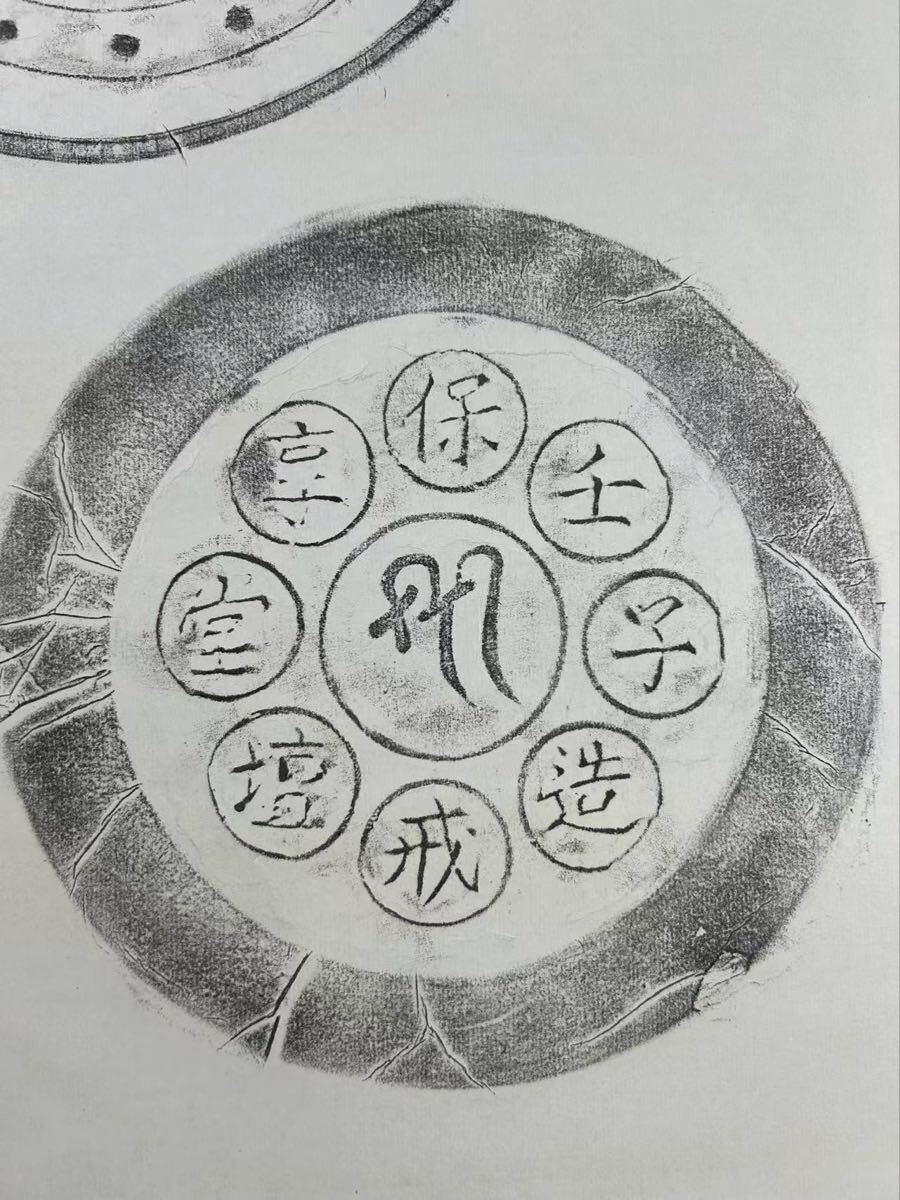 享保壬子造戒壇堂